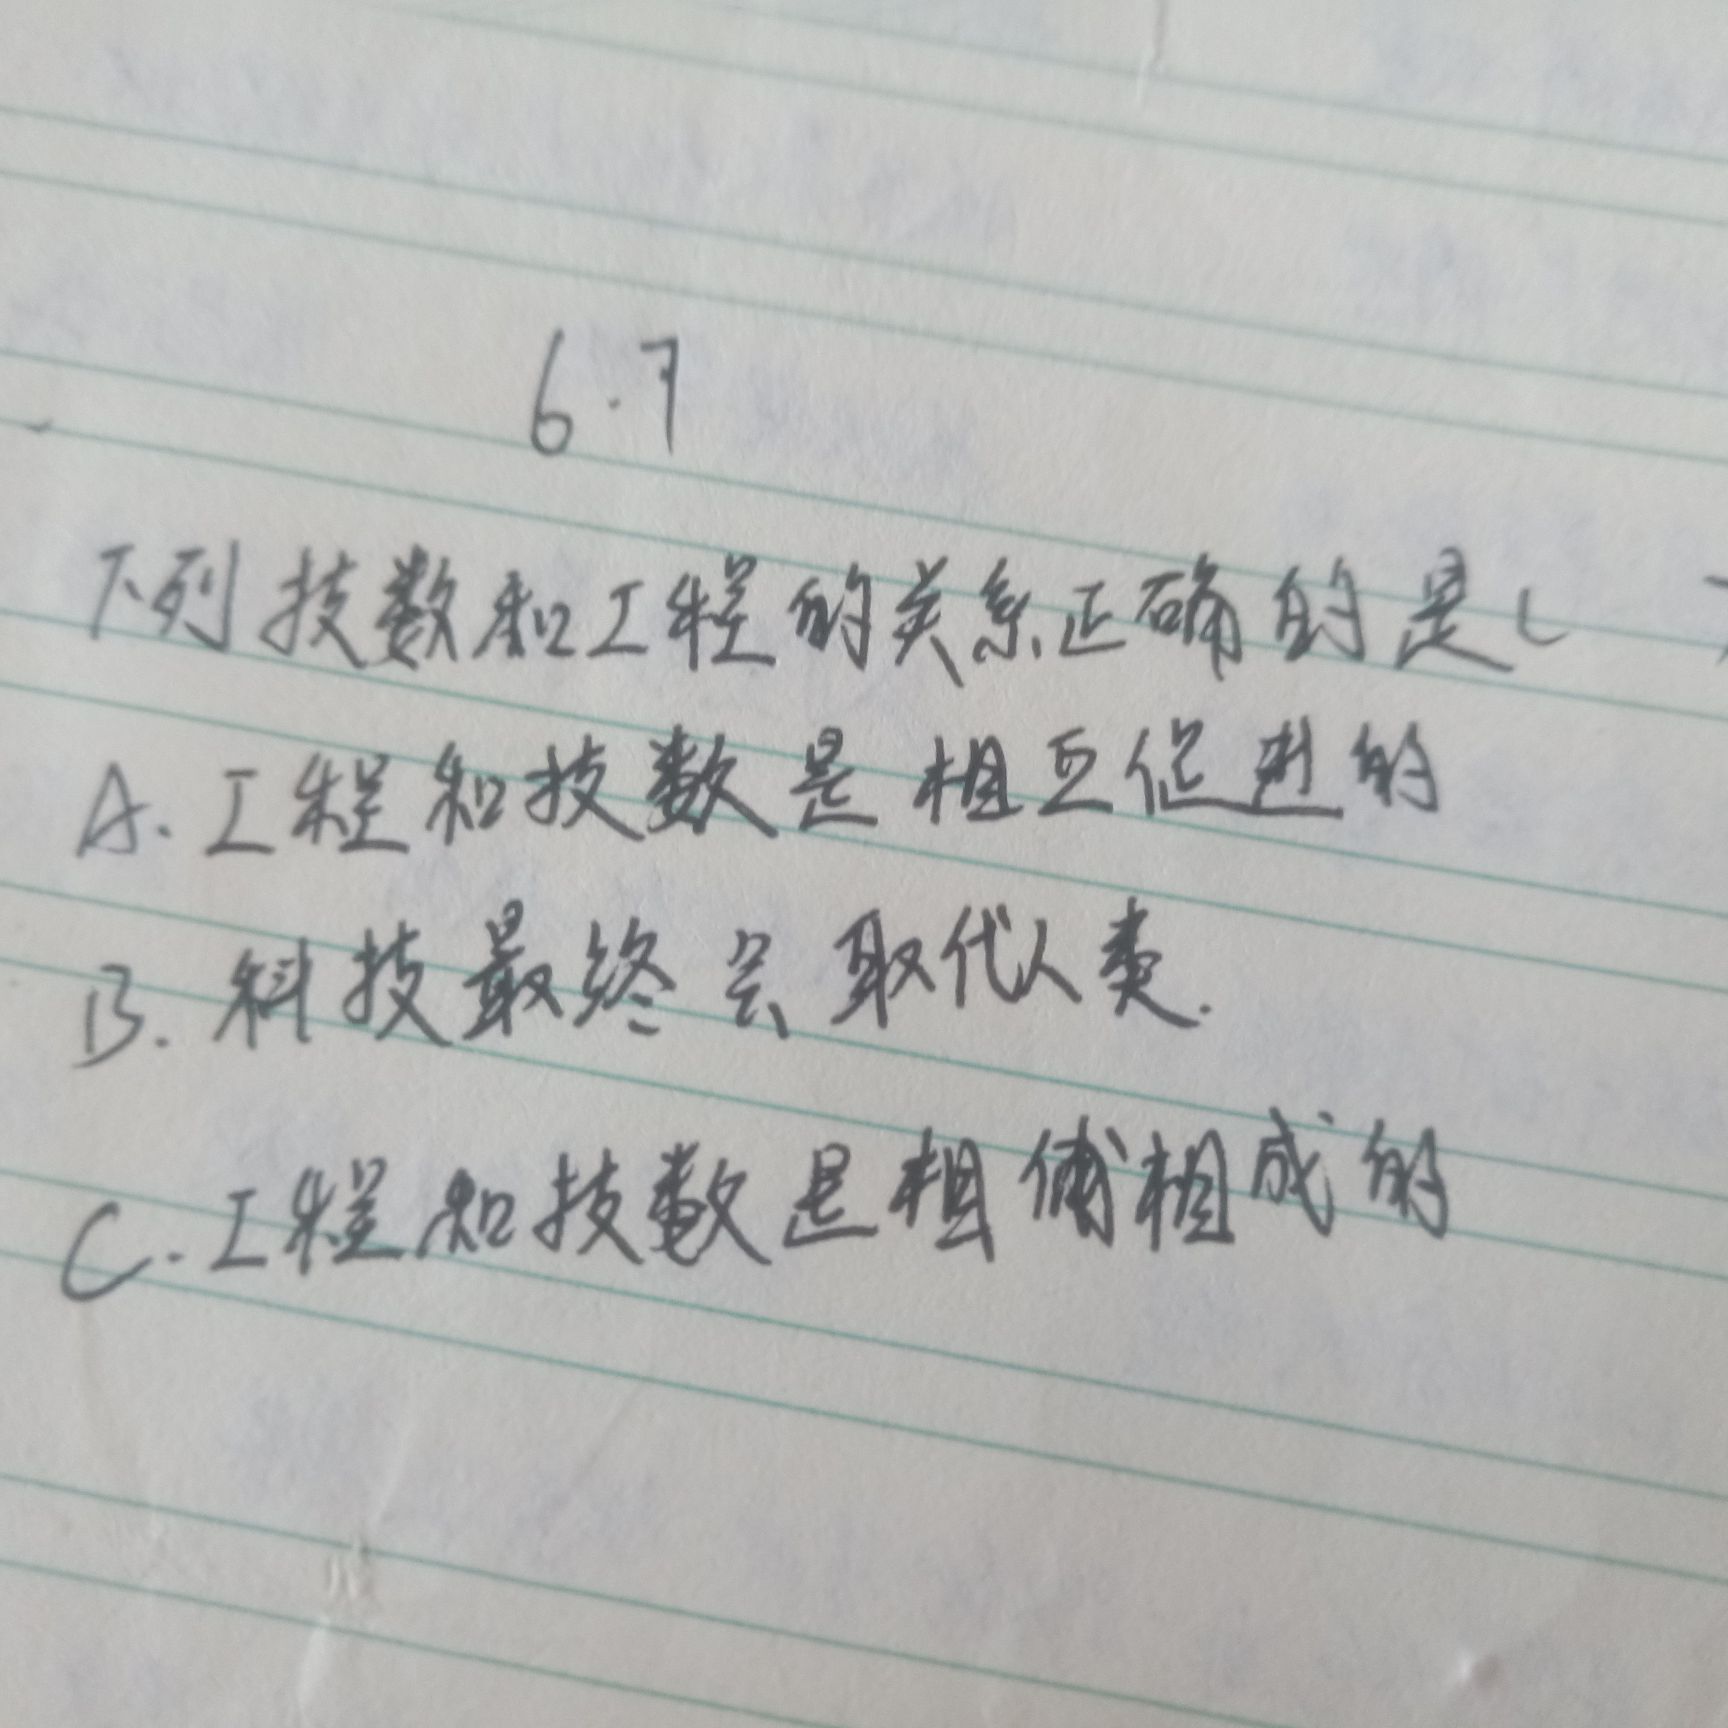 6.7
下列技数和工程的关系正确的是( )
A.工程和技数是相互促进的
B.科技最终会取代人类.
C.工程和技数是相俌相成的